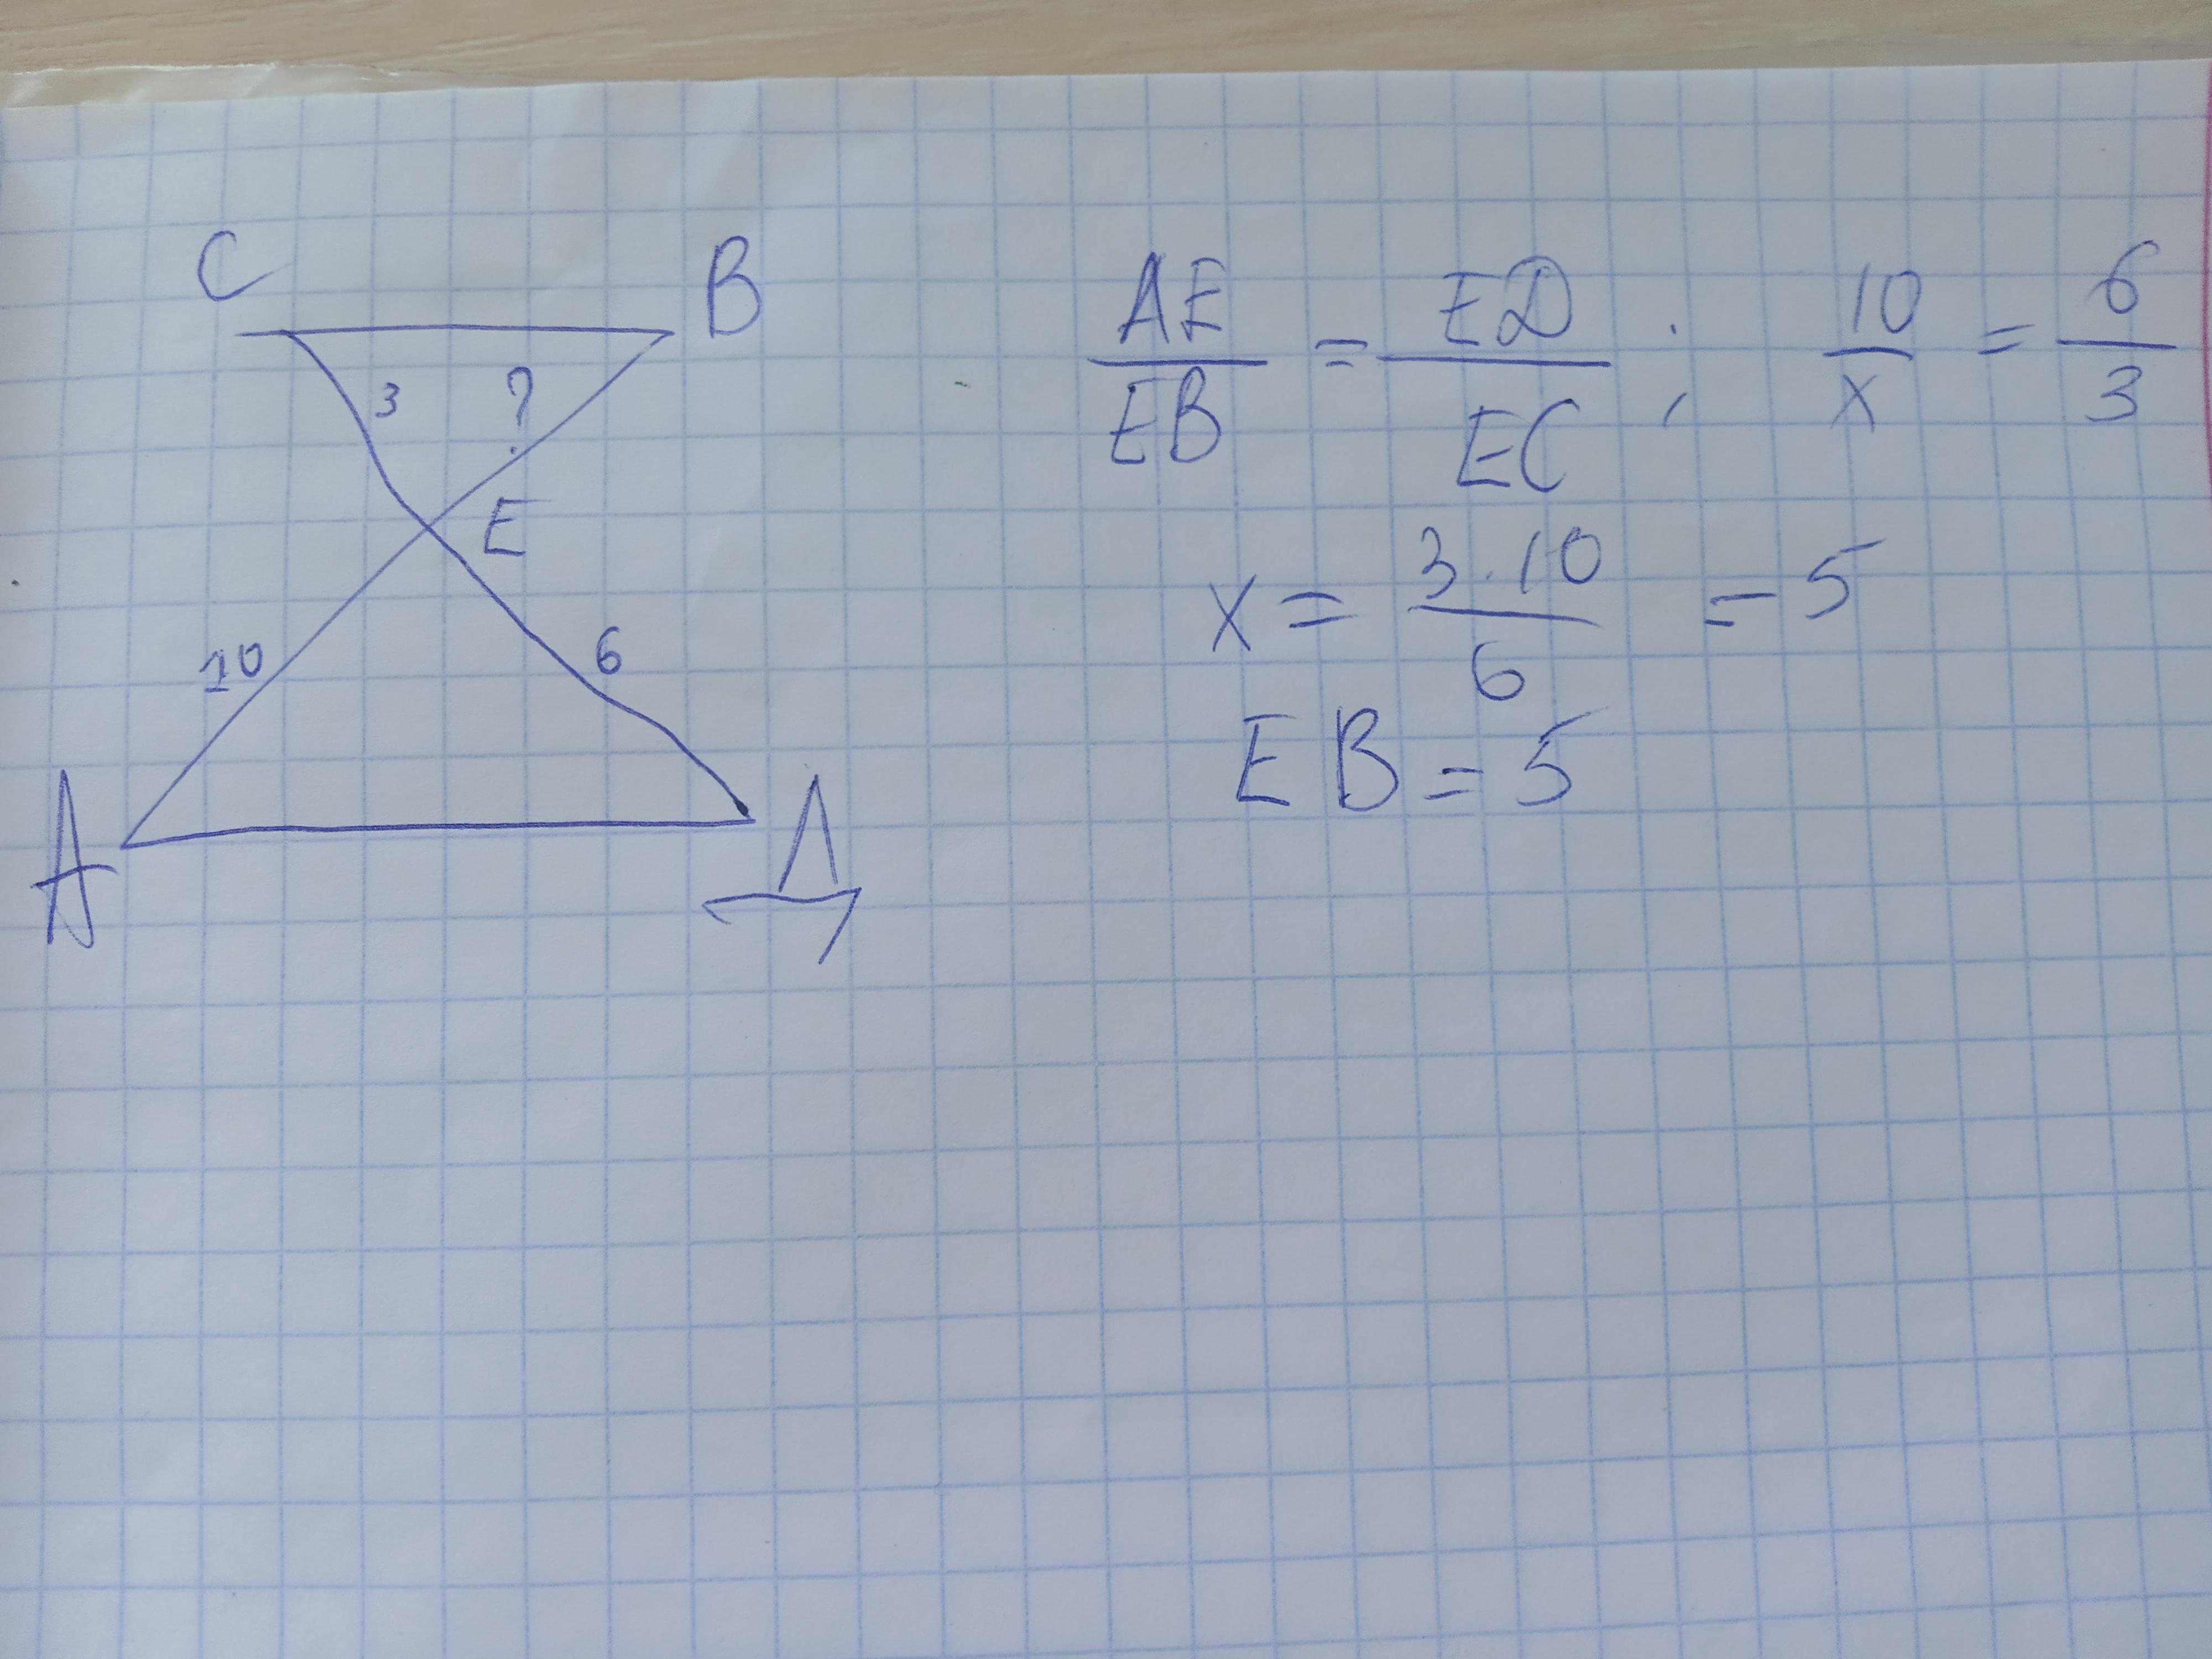 C B
3 ?
E
10 6
A Д
AE/EB = ED/EC ; 10/x = 6/3
x = 3·10/6 = 5
EB = 5